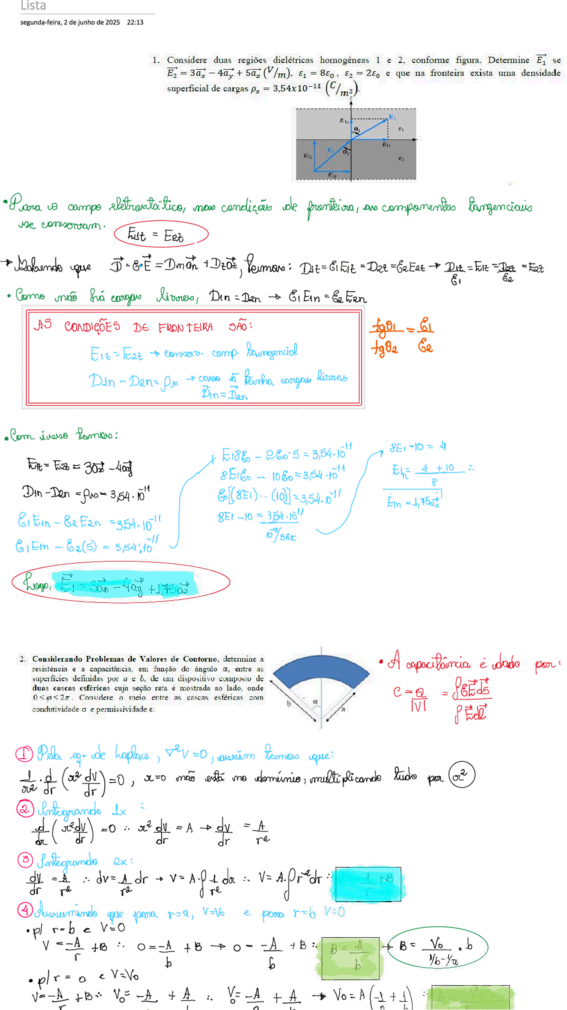 Lista
segunda-feira, 2 de junho de 2025 22:13
1. Considere duas regiões dielétricas homogêneas 1 e 2, conforme figura. Determine E₁ se
E₂ = 3aₓ − 4a_y + 5a_z (V/m), ε₁ = 8ε₀, ε₂ = 2ε₀ e que na fronteira exista uma densidade
superficial de cargas ρₛ = 3,54x10⁻¹¹ (C/m²).
• Para o campo eletrostático, nas condições de fronteira, as componentes tangenciais
se conservam. E1t = E2t
→ Sabendo que D = εE = Dn an + Dt at, temos: D1t = ε1E1t = D2t = ε2E2t → D1t/ε1 = E1t = D2t/ε2 = E2t
• Como não há cargas livres, D1n = D2n → ε1E1n = ε2E2n
AS CONDIÇÕES DE FRONTEIRA SÃO:
E1t = E2t → conserv. comp. tangencial
D1n − D2n = ρs → caso ñ tenha cargas livres
D1n = D2n
tgθ1/tgθ2 = ε1/ε2
• Com isso temos:
D1n − D2n = ρs = 3,54·10⁻¹¹
ε1E1n − ε2E2n = 3,54·10⁻¹¹
ε1E1n − ε2(5) = 3,54·10⁻¹¹
E18ε0 − 2ε0·5 = 3,54·10⁻¹¹
8E1ε0 − 10ε0 = 3,54·10⁻¹¹
8E1 − 10 = 3,54·10⁻¹¹
10⁻⁹/36π
8E1 − 10 = 4
4 + 10 ∴
8
Logo,
2. Considerando Problemas de Valores de Contorno, determine a
resistência e a capacitância, em função do ângulo α, entre as
superfícies definidas por a e b, de um dispositivo composto de
duas cascas esféricas cuja seção reta é mostrada ao lado, onde
0<φ<2π. Considere o meio entre as cascas esféricas com
condutividade σ e permissividade ε.
b α a
• A capacitância é dado por:
C = Q/|V| = ∫εE ds / ∫E dl
① Pela eq. de Laplace, ∇²V = 0, assim temos que:
1/r² · d/dr (r² dV/dr) = 0, r=0 não está no domínio, multiplicando tudo por r²
② Integrando 1x:
d/dr (r² dV/dr) = 0 ∴ r² dV/dr = A → dV/dr = A/r²
③ Integrando 2x:
dV/dr = A/r² ∴ dV = A/r² dr → V = A·∫ 1/r² dr ∴ V = A·∫ r⁻² dr ∴
④ Assumindo que para r=a, V=V0 e para r=b V=0
• p/ r=b e V=0
V = −A/r + B ∴ 0 = −A/b + B → 0 = −A/b + B ∴ B = A/b → B = V0/(1/b − 1/a) · b
• p/ r = a e V=V0
V = −A/r + B ∴ V0 = −A/a + A/b ∴ V0 = −A/a + A/b → V0 = A(−1/a + 1/b) ∴